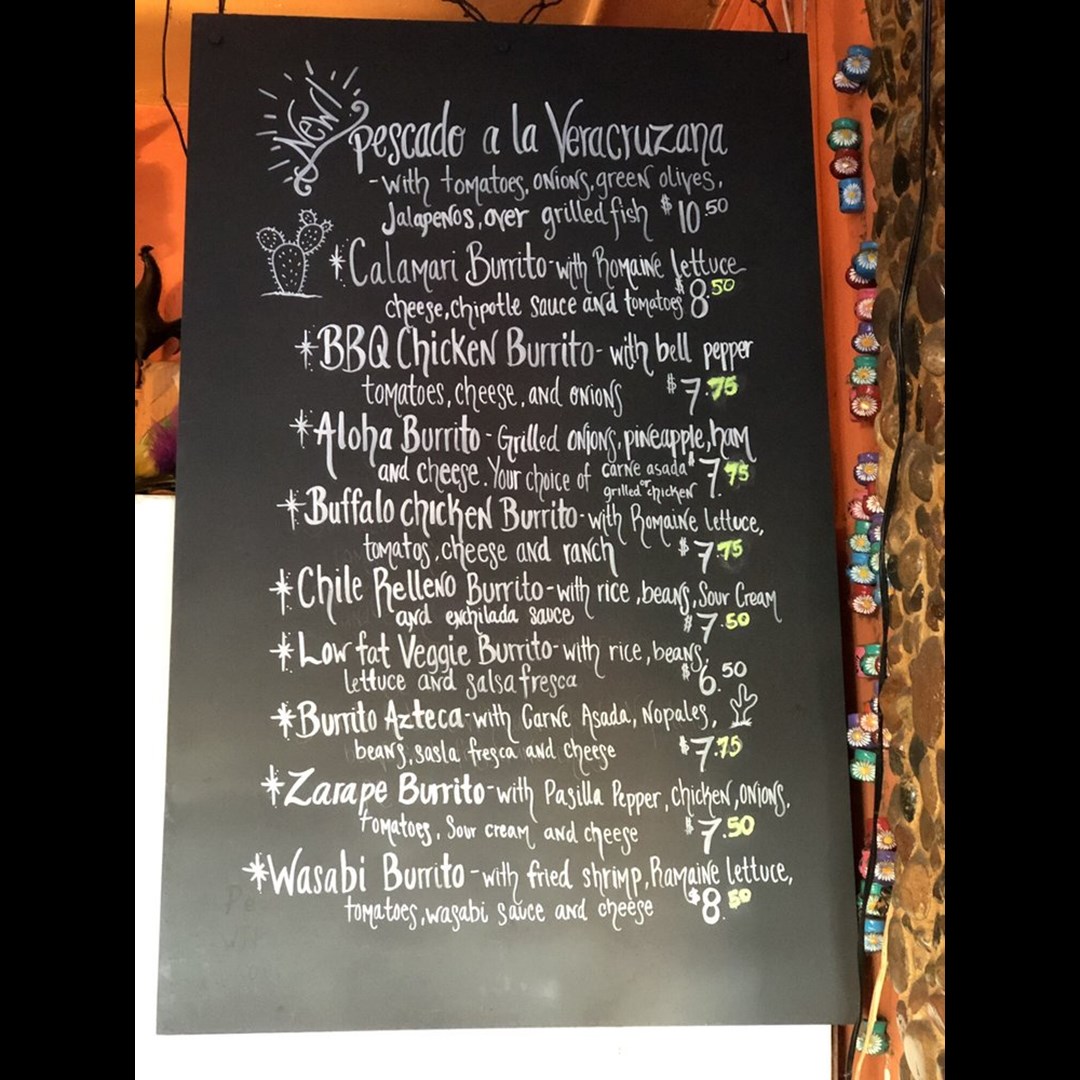 New!
pescado a la Veracruzana
-with tomatoes, onions, green olives,
Jalapeños, over grilled fish $10.50
*Calamari Burrito-with Romaine lettuce
cheese, chipotle sauce and tomatoes $8.50
*BBQ Chicken Burrito-with bell pepper
tomatoes, cheese, and onions $7.75
*Aloha Burrito-Grilled onions, pineapple, ham
and cheese. Your choice of carne asada or grilled chicken $7.75
*Buffalo chicken Burrito-with Romaine lettuce,
tomatos, cheese and ranch $7.75
*Chile Relleno Burrito-with rice, beans, Sour Cream
and enchilada sauce $7.50
*Low fat Veggie Burrito-with rice, beans,
lettuce and salsa fresca $6.50
*Burrito Azteca-with Carne Asada, Nopales,
beans, sasla fresca and cheese $7.75
*Zarape Burrito-with Pasilla Pepper, chicken, onions,
tomatoes, Sour cream and cheese $7.50
*Wasabi Burrito-with fried shrimp, Ramaine lettuce,
tomatoes, wasabi sauce and cheese $8.50